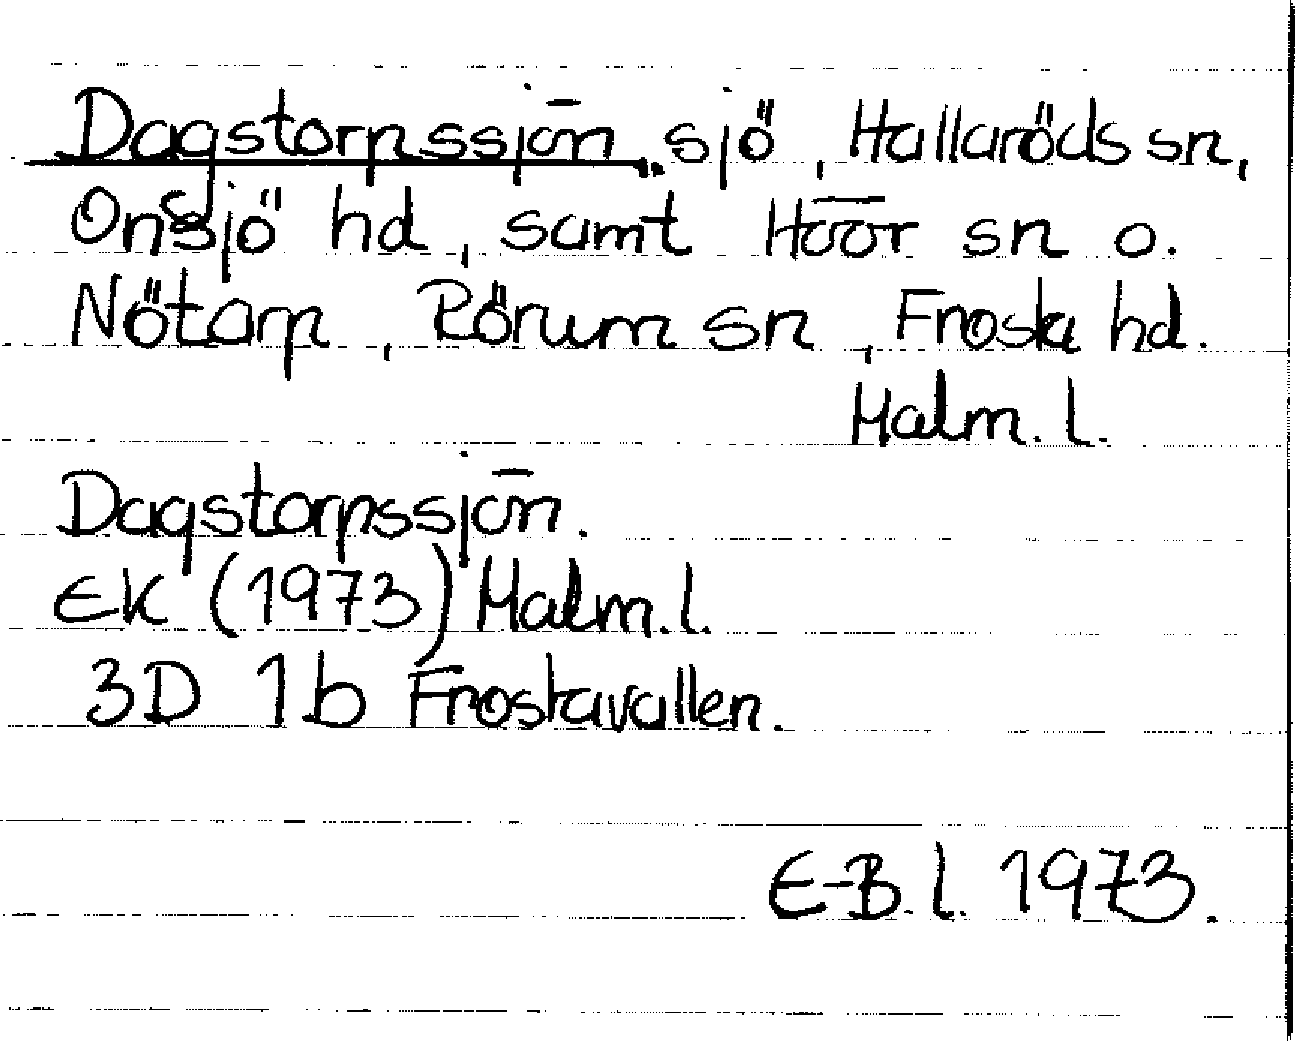 Dagstorpssjön. sjö, Hallaröds sn,
Onsjö hd, samt Höör sn o.
Nötarp, Rörum sn, Frosta hd.
Malm. l.
Dagstorpssjön.
EK (1973) Malm. l.
3D 1b Frostavallen.
E-B. l. 1973.